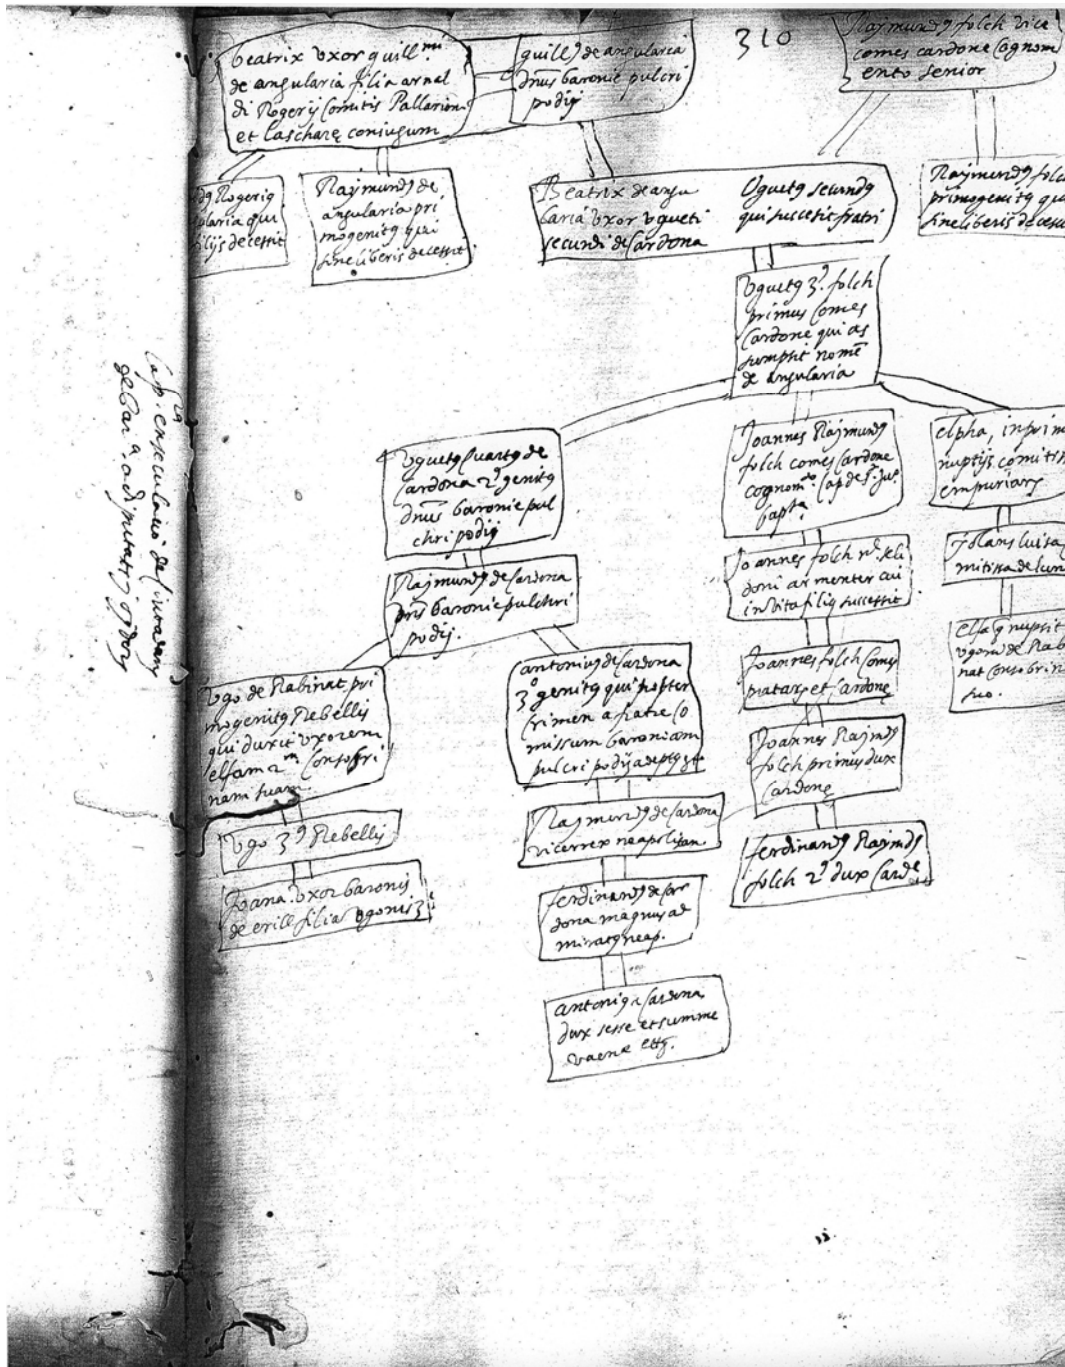 310
beatrix vxor guill.mi
de angularia filia arnal
di Rogerij Comitis Pallarien
et Lascharę coniugum
guill9 de angularia
dnus baronie pulcri
podij
Raymund9 folch vice
comes cardone Cognom
ento senior
Rogeri9
ularia qui
filijs decessit
Raymund9 de
angularia pri
mogenit9 qui
sine liberis decessit
Beatrix de angu
laria vxor vgueti
secundi de Cardona
Uguet9 secund9
qui succesit fratri
Raymund9 folc
primogenit9 qu
sine liberis decess
Vguet9 3.9 folch
primus Comes
Cardone qui as
sumpsit nomē
de angularia
Vguet9 Quart9 de
Cardona 2.9 genit9
dnus baronie pul
chri podij
Joannes Raymund9
folch comes Cardone
cognom.to Cap de
bapta
elpha, in prim
nuptijs comitis
empuriar
Raymund9 de Cardona
dns baronie pulchri
podij.
Joannes folch
doni armenter cui
in vita fili9 succesit
Jolans luisa
mitissa de lun
Vgo de Rabinat pri
mogenit9 Rebellis
qui duxit vxorem
elfam 2.m Consobri
nam suam
antoni9 de Cardona
3.o genit9 qui propter
Crimen a fratre Co
missum baroniam
pulcri podij adept9 est
Joannes folch Comes
pratarȝ et Cardone
elfa q nupsit
vgoni de Rabi
nat consobrin
suo.
Joannes Raymd9
folch primus dux
Cardone
Vgo 3.9 Rebellis
Raymund9 de Cardona
vicerrex neapolitan.
ferdinand9 Raymd9
folch 2.9 dux Carde
Joana vxor baronis
de erill filia vgonis 3.i
ferdinand9 de Car
dona magnus ad
mirat9 neap.
antoni9 a Cardona
dux sesse et summe
vaenæ ettȝ.